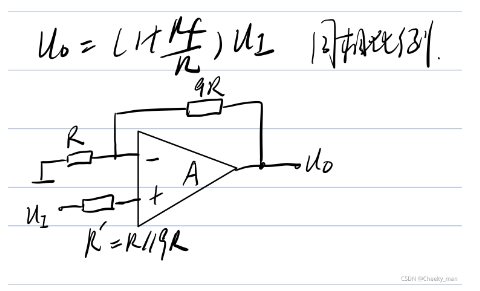 U₀ = (1+ Rf/R) U_I 同相比例
9R
R
−
A
U₀
+
U_I
R' = R//9R
CSDN @Cheeky_man